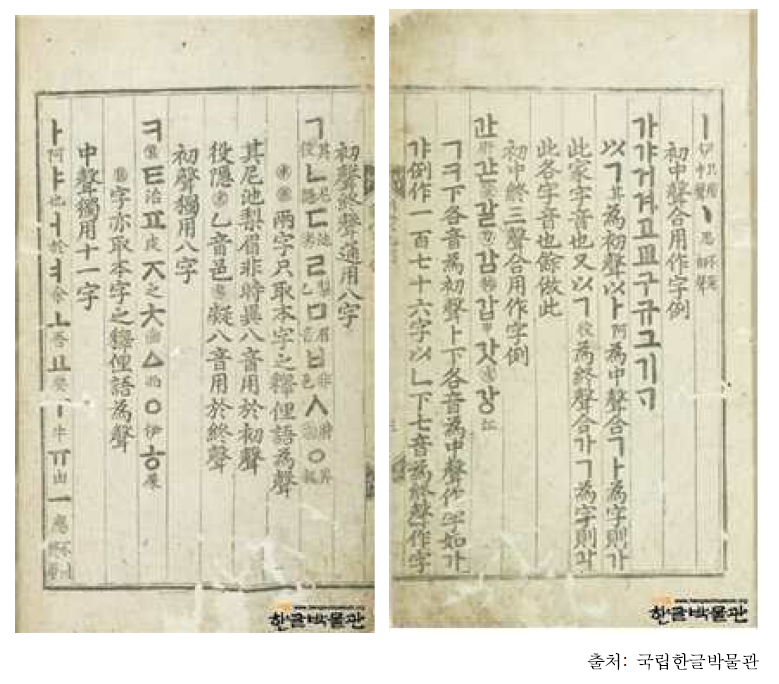 初聲終聲通用八字
ㄱ其役ㄴ尼隱ㄷ池末ㄹ梨乙ㅁ眉音ㅂ非邑ㅅ時衣ㆁ異凝
末衣兩字只取本字之釋俚語爲聲
其尼池梨眉非時異八音用於初聲
役隱末乙音邑衣凝八音用於終聲
初聲獨用八字
ㅋ箕ㅌ治ㅍ皮ㅈ之ㅊ齒ㅿ而ㅇ伊ㅎ屎
箕字亦取本字之釋俚語爲聲
中聲獨用十一字
ㅏ阿ㅑ也ㅓ於ㅕ余ㅗ吾ㅛ要ㅜ牛ㅠ由ㅡ應不用終聲
ㅣ伊只用中聲ㆍ思不用初聲
初中聲合用作字例
가갸거겨고교구규그기ᄀᆞ
以ㄱ其爲初聲以ㅏ阿爲中聲合ㄱㅏ爲字則가
此家字音也又以ㄱ役爲終聲合가ㄱ爲字則각
此各字音也餘倣此
初中終三聲合用作字例
간肝갇笠갈刀감柿갑甲갓皮강江
ㄱㅋ下各音爲初聲ㅏ下各音爲中聲作字如가
갸例作一百七十六字以ㄴ下七音爲終聲作字
www.hangeulmuseum.org
한글박물관
www.hangeulmuseum.org
한글박물관
출처: 국립한글박물관